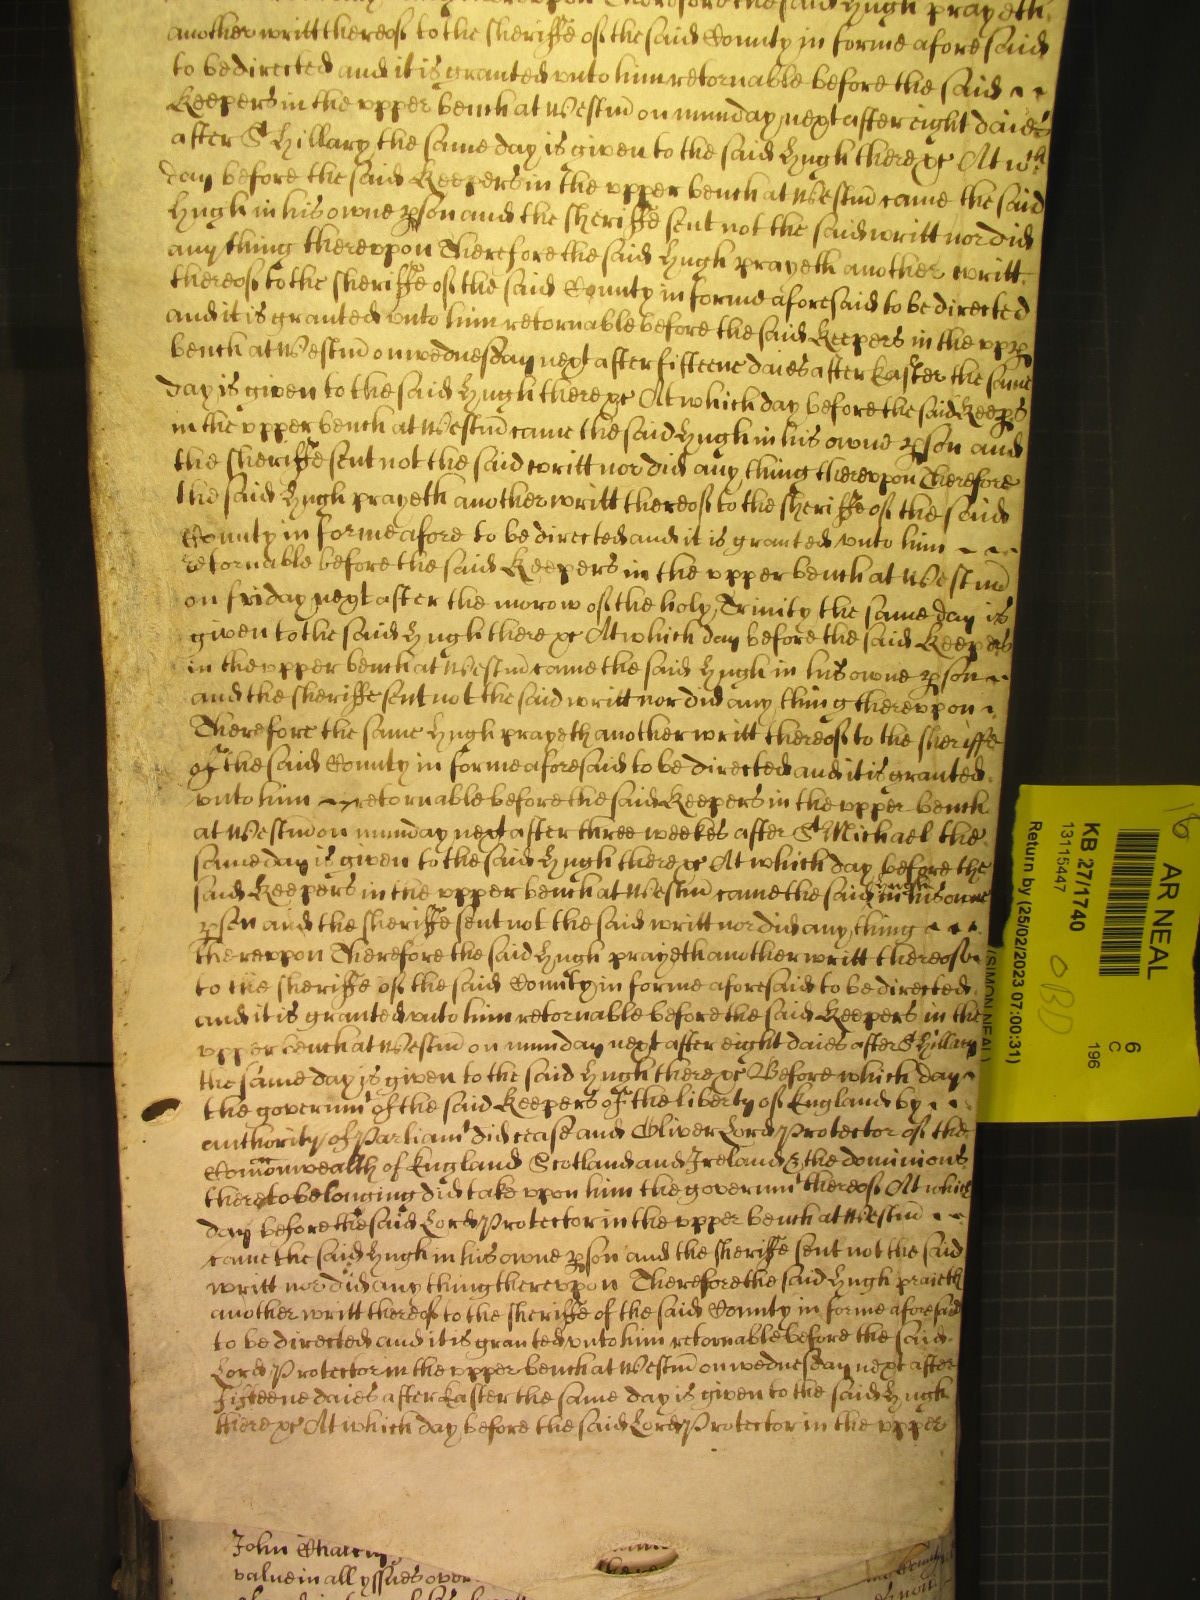 thereupon Therefore the said Hugh prayeth
another writt thereof to the Sheriffe of the said County in forme aforesaid
to be directed and it is granted vnto him retornable before the said
Keepers in the vpper bench at Westm̄ on munday next after eight daies
after St Hillary the same day is given to the said Hugh there &c At wch
day before the said Keepers in the vpper bench at Westm̄ came the said
Hugh in his owne ꝑson and the Sheriffe sent not the said writt nor did
any thing therevpon Therefore the said Hugh prayeth another writt
thereof to the Sheriffe of the said County in forme aforesaid to be directed
and it is granted vnto him retornable before the said Keepers in the vppꝑ
bench at Westm̄ on wednesday next after fifteene daies after Easter the same
day is given to the said Hugh there &c At which day before the said Keeꝑs
in the vpper bench at Westm̄ came the said Hugh in his owne ꝑson and
the Sheriffe sent not the said writt nor did any thing therevpon Therefore
the said Hugh prayeth another writt thereof to the Sheriffe of the said
County in forme afore to be directed and it is granted vnto him
retornable before the said Keepers in the vpper bench at Westm̄
on friday next after the morow of the holy Trinity the same day is
given to the said Hugh there &c At which day before the said Keepers
in the vpper bench at Westm̄ came the said Hugh in his owne ꝑson
and the Sheriffe sent not the said writt nor did any thing therevpon
Therefore the same Hugh prayeth another writt thereof to the Sheriffe
of the said County in forme aforesaid to be directed and it is granted
vnto him retornable before the said Keepers in the vpper bench
at Westm̄ on munday next after three weekes after St Michael the
same day is given to the said Hugh there &c At which day before the
said Keepers in the vpper bench at Westm̄ came the said Hugh in his owne
ꝑson and the Sheriffe sent not the said writt nor did any thing
therevpon Therefore the said Hugh prayeth another writt thereof
to the Sheriffe of the said County in forme aforesaid to be directed
and it is granted vnto him retornable before the said Keepers in the
vpper bench at Westm̄ on munday next after eight daies after St Hillary
the same day is given to the said Hugh there &c Before which day
the governmt of the said Keepers of the liberty of England by
authority of Parliamt did cease and Oliver Lord Protector of the
Com̄onwealth of England Scotland and Ireland & the dominions
thereto belonging did take vpon him the governmt thereof At which
day before the said Lord Protector in the vpper bench at Westm̄
came the said Hugh in his owne ꝑson and the Sheriffe sent not the said
writt nor did any thing therevpon Therefore the said Hugh praieth
another writt thereof to the Sheriffe of the said County in forme aforesaid
to be directed and it is granted vnto him retornable before the said
Lord Protector in the vpper bench at Westm̄ on wednesday next after
fifteene daies after Easter the same day is given to the said Hugh
there &c At which day before the said Lord Protector in the vpper
John
value in all yssues over
AR NEAL
KB 27/1740
13115447
Return by (25/02/2023 07:00:31)
(SIMON NEAL)
6
C
196